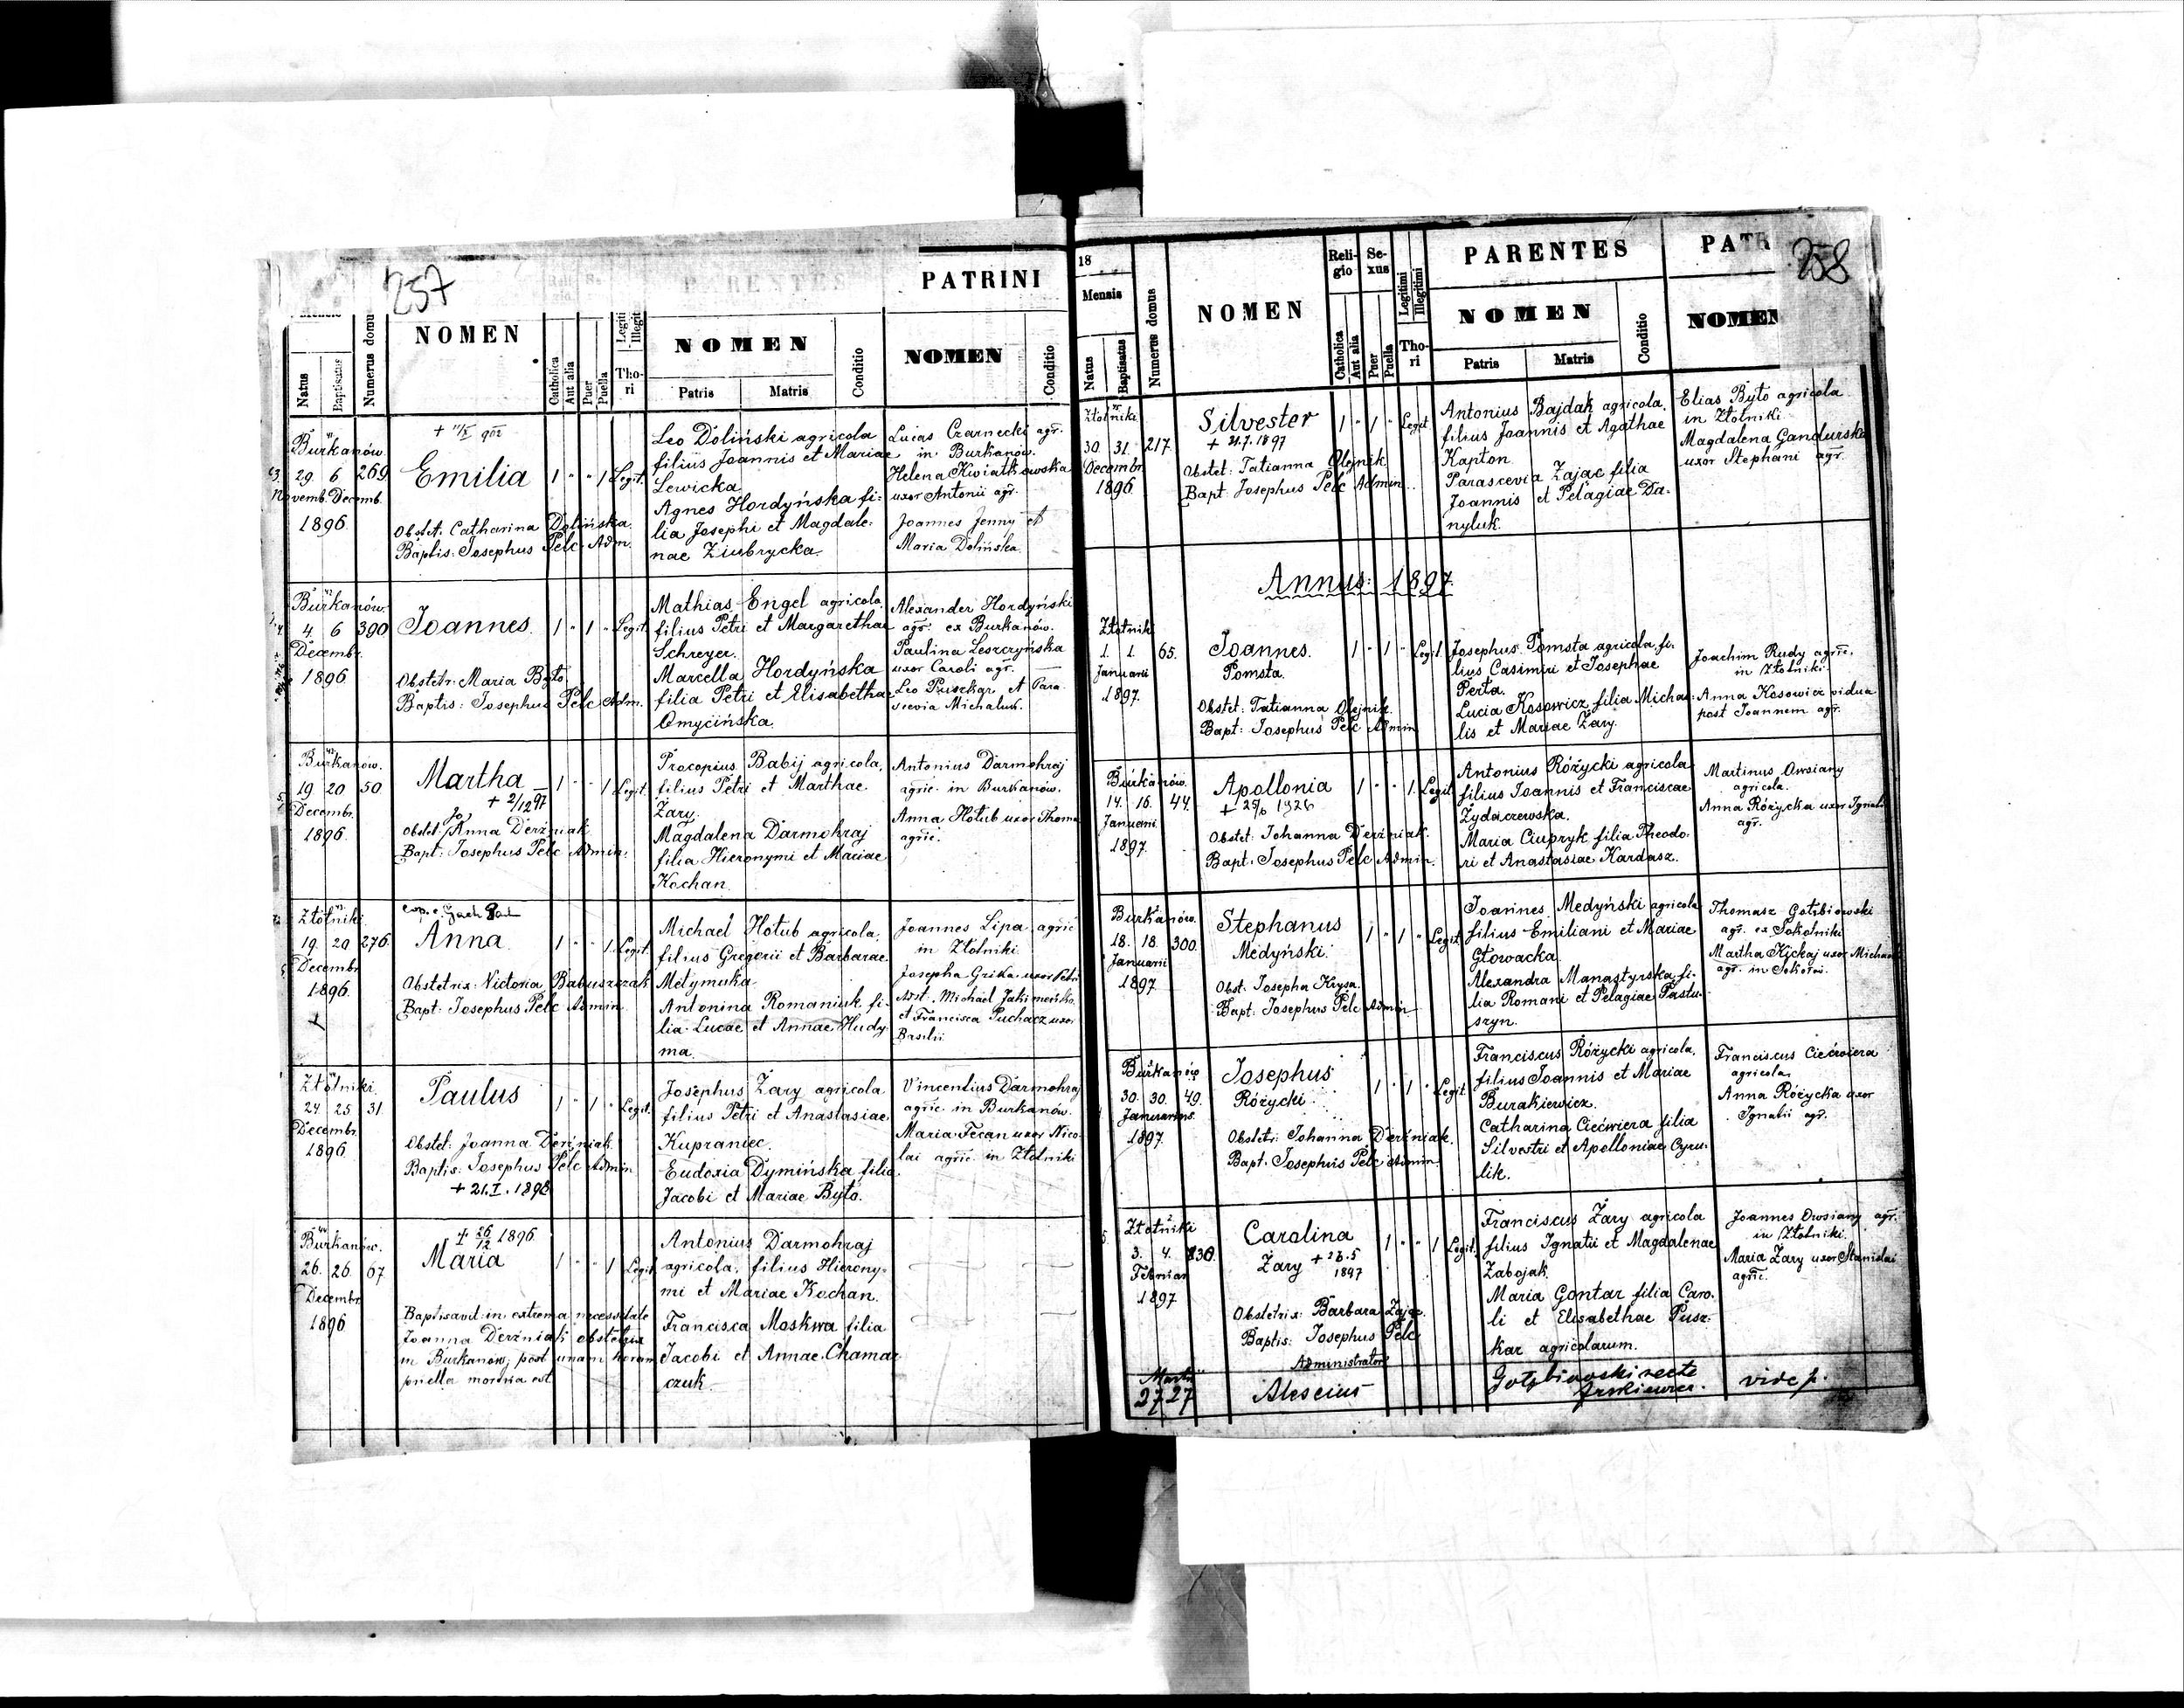 257
PARENTES
PATRINI
Mensis
Natus
Baptisatus
Numerus domu
NOMEN
Religio
Catholica
Aut alia
Puer
Puella
Legiti
Illegit
Thori
NOMEN
Patris
Matris
Conditio
NOMEN
Conditio
Burkanów.
29 6 269
Novemb. Decemb.
1896
Emilia
1 " " 1 Legit.
Obstet. Catharina Dolińska.
Baptis: Josephus Pelc Adm.
Leo Doliński agricola
filius Joannis et Mariae
Lewicka
Agnes Hordyńska fi=
lia Josephi et Magdale:
nae Ziubrycka
Lucas Czarnecki agr.
in Burkanów.
Helena Kwiatkowska
uxor Antonii agr.
Joannes Jenny et
Maria Dolińska
Burkanów.
4. 6 390
Decembr.
1896
Joannes.
1 " 1 " Legit.
Obstetr: Maria Byto
Baptis: Josephus Pelc Adm.
Mathias Engel agricola
filius Petri et Margarethae
Schreyer.
Marcella Hordyńska
filia Petri et Elisabethae
Omycińska.
Alexander Hordyński
agr. ex Burkanów.
Paulina Leszczyńska
uxor Caroli agr.
Leo Puszkar et Para
scevia Michaluk.
Burkanów.
19 20 50
Decembr.
1896.
Martha
+ 2/12 97
1 " " 1 Legit.
Jo
Obstet: Anna Derżniak
Bapt: Josephus Pelc Admin.
Procopius Babij agricola,
filius Petri et Marthae
Żary.
Magdalena Darmohraj
filia Hieronymi et Mariae
Kochan.
Antonius Darmohraj
agric. in Burkanów.
Anna Hołub uxor Thoma
agric.
Złotniki.
19. 20 276.
Decembr
1896.
Anna.
1 " " 1. Legit.
Obstetrix: Victoria Babuszczak
Bapt: Josephus Pelc Admin
Michael Hołub agricola,
filius Gregorii et Barbarae
Metymuka
Antonina Romaniuk fi-
lia Lucae et Annae Hudy
ma.
Joannes Lipa agric
in Złotniki
Josepha Grika uxor Petri
Adst. Michael Jakimeńsko
et Francisca Puchacz uxor
Basilii
Złotniki.
24. 25 31
Decembr.
1896
Paulus
1 " 1 " Legit.
Obstet: Joanna Derżniak
Baptis: Josephus Pelc Admin
+ 21. I. 1898
Josephus Żary agricola
filius Petri et Anastasiae
Kupraniec.
Eudoxia Dymińska filia
Jacobi et Mariae Byto.
Vincentius Darmohraj
agric. in Burkanów.
Maria Fecan uxor Nico
lai agric. in Złotniki
Burkanów.
26. 26. 67
Decembr
1896
+ 26/12 1896
Maria
1 " " 1 Legit
Baptisavit in extrema necessitate
Joanna Derżniak obstetrix
in Burkanów, post unam horam
puella mortua est
Antonius Darmohraj
agricola, filius Hierony=
mi et Mariae Kochan.
Francisca Moskwa filia
Jacobi et Annae Chamar
czuk
258
18
Mensis
Natus
Baptisatus
Numerus domus
NOMEN
Religio
Catholica
Aut alia
Sexus
Puer
Puella
Legitimi
Illegitimi
Thori
PARENTES
NOMEN
Patris
Matris
Conditio
PATR
NOMEN
Złotniki
30. 31. 217.
Decembr
1896
Silvester
+ 21.7.1897
1 " 1 " Legit
Obstet: Tatianna Olejnik
Bapt: Josephus Pelc Admin.
Antonius Bajdak agricola,
filius Joannis et Agathae
Kapton.
Parascevia Zając filia
Joannis et Pelagiae Da-
nyluk.
Elias Byto agricola
in Złotniki
Magdalena Gandurska
uxor Stephani agr.
Annus: 1897.
Złotniki
1. 1. 65.
Januarii
1897.
Joannes.
Pomsta.
1 " 1 " Legit.
Obstet: Tatianna Olejnik.
Bapt: Josephus Pelc Admin
Josephus Pomsta agricola, fi-
lius Casimiri et Josephae
Perta.
Lucia Kosowicz filia Michae:
lis et Mariae Żary.
Joachim Rudy agric.
in Złotniki.
Anna Kosowicz vidua
post Joannem agr.
Burkanów.
14. 16. 44.
Januarii
1897.
Apollonia
1 " " 1. Legit
Obstet: Johanna Derżniak.
Bapt. Josephus Pelc Admin.
Antonius Różycki agricola
filius Joannis et Franciscae
Żydaczewska.
Maria Ciupryk filia Theodo-
ri et Anastasiae Kardasz.
Martinus Owsiany
agricola.
Anna Różycka uxor Ignatii
agr.
Burkanów.
18. 18. 300.
Januarii
1897
Stephanus
Medyński.
1 " 1 " Legit
Obst: Josepha Krysa.
Bapt: Josephus Pelc Admin
Joannes Medyński agricola
filius Emiliani et Mariae
Głowacka.
Alexandra Manastyrska fi-
lia Romani et Pelagiae Pastu-
szyn.
Thomasz Gołębiowski
agr. ex Sokolniki
Martha Kickaj uxor Michaeli
agr. in Sokołów.
Burkanów
30. 30. 49.
Januarius.
1897.
Josephus
Różycki
1 " 1 " Legit.
Obstetr: Johanna Derżniak.
Bapt. Josephus Pelc Admin.
Franciscus Różycki agricola,
filius Joannis et Mariae
Burakiewicz.
Catharina Ciećwiera filia
Silvestri et Apolloniae Cyru-
lik.
Franciscus Ciećwiera
agricola,
Anna Różycka uxor
Ignatii agr.
Złotniki
3. 4. 830.
Februar
1897
Carolina
Żary + 26.5
1897
1 " " 1 Legit.
Obstetrix: Barbara Zając
Baptis: Josephus Pelc
Administrator
Franciscus Żary agricola
filius Ignatii et Magdalenae
Zabojak.
Maria Gontar filia Caro-
li et Elisabethae Pusz-
kar agricolarum.
Joannes Owsiany agr.
in Złotniki.
Maria Żary uxor Stanislai
agric.
Martii
27 27
Alexius
Gołębiowski recte
vide p.